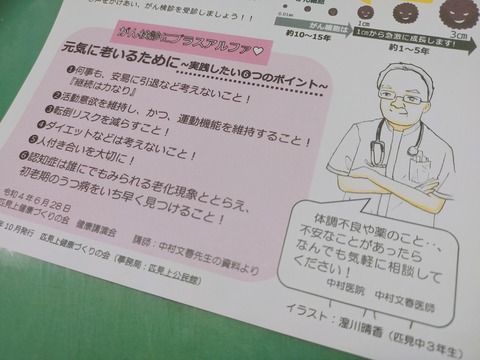 声をかけあい、がん検診を受診しましょう！！
0.01mm
1cm
3cm
がん細胞は
1cmから急激に成長します！
約10～15年
約1～5年
がん検診にプラスアルファ♡
元気に老いるために～実践したい6つのポイント～
❶何事も、安易に引退など考えないこと！
『継続は力なり』
❷活動意欲を維持し、かつ、運動機能を維持すること！
❸転倒リスクを減らすこと！
❹ダイエットなどは考えないこと！
❺人付き合いを大切に！
❻認知症は誰にでもみられる老化現象ととらえ、
初老期のうつ病をいち早く見つけること！
令和4年6月28日
匹見上健康づくりの会 健康講演会 講師：中村文春先生の資料より
年10月発行 匹見上健康づくりの会（事務局：匹見上公民館）
体調不良や薬のこと…、
不安なことがあったら
なんでも気軽に相談して
ください！
中村医院 中村文春医師
イラスト：澄川晴香（匹見中3年生）